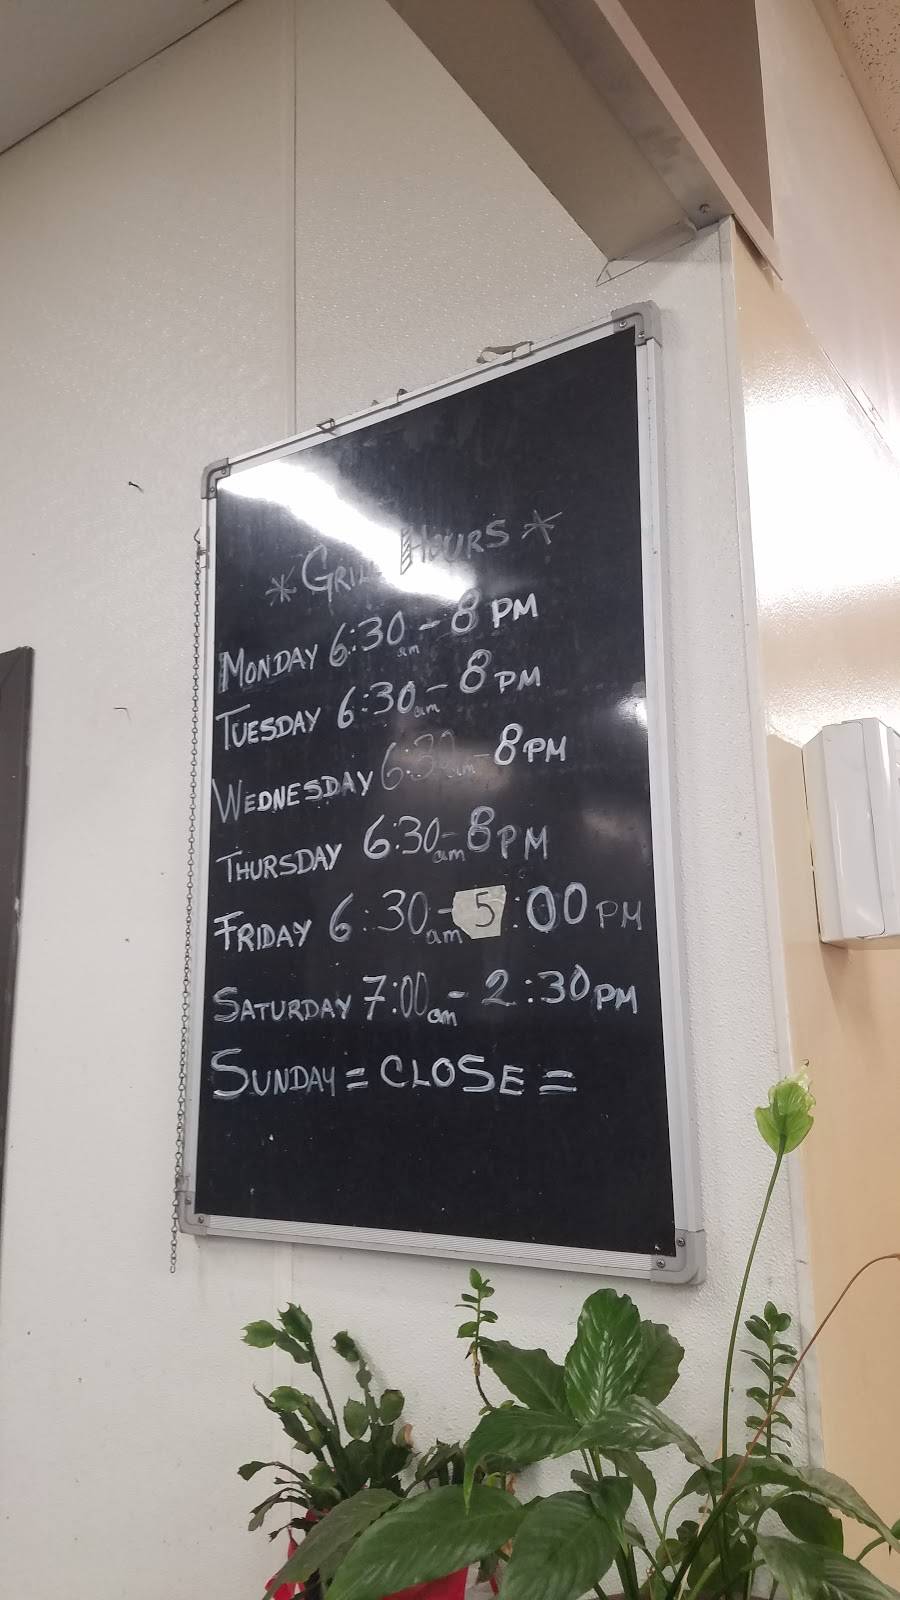 * GRILL HOURS *
MONDAY 6:30am - 8 PM
TUESDAY 6:30am - 8 PM
WEDNESDAY 6:30am - 8 PM
THURSDAY 6:30am - 8 PM
FRIDAY 6:30am - 5:00 PM
SATURDAY 7:00am - 2:30 PM
SUNDAY = CLOSE =